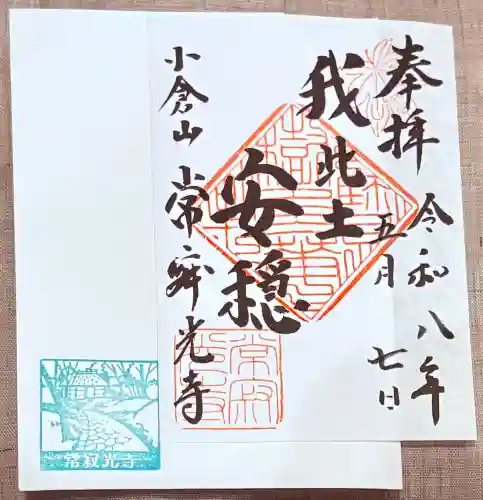 奉拝
令和八年
五月七日
我此土
安穏
小倉山 常寂光寺
常寂光寺